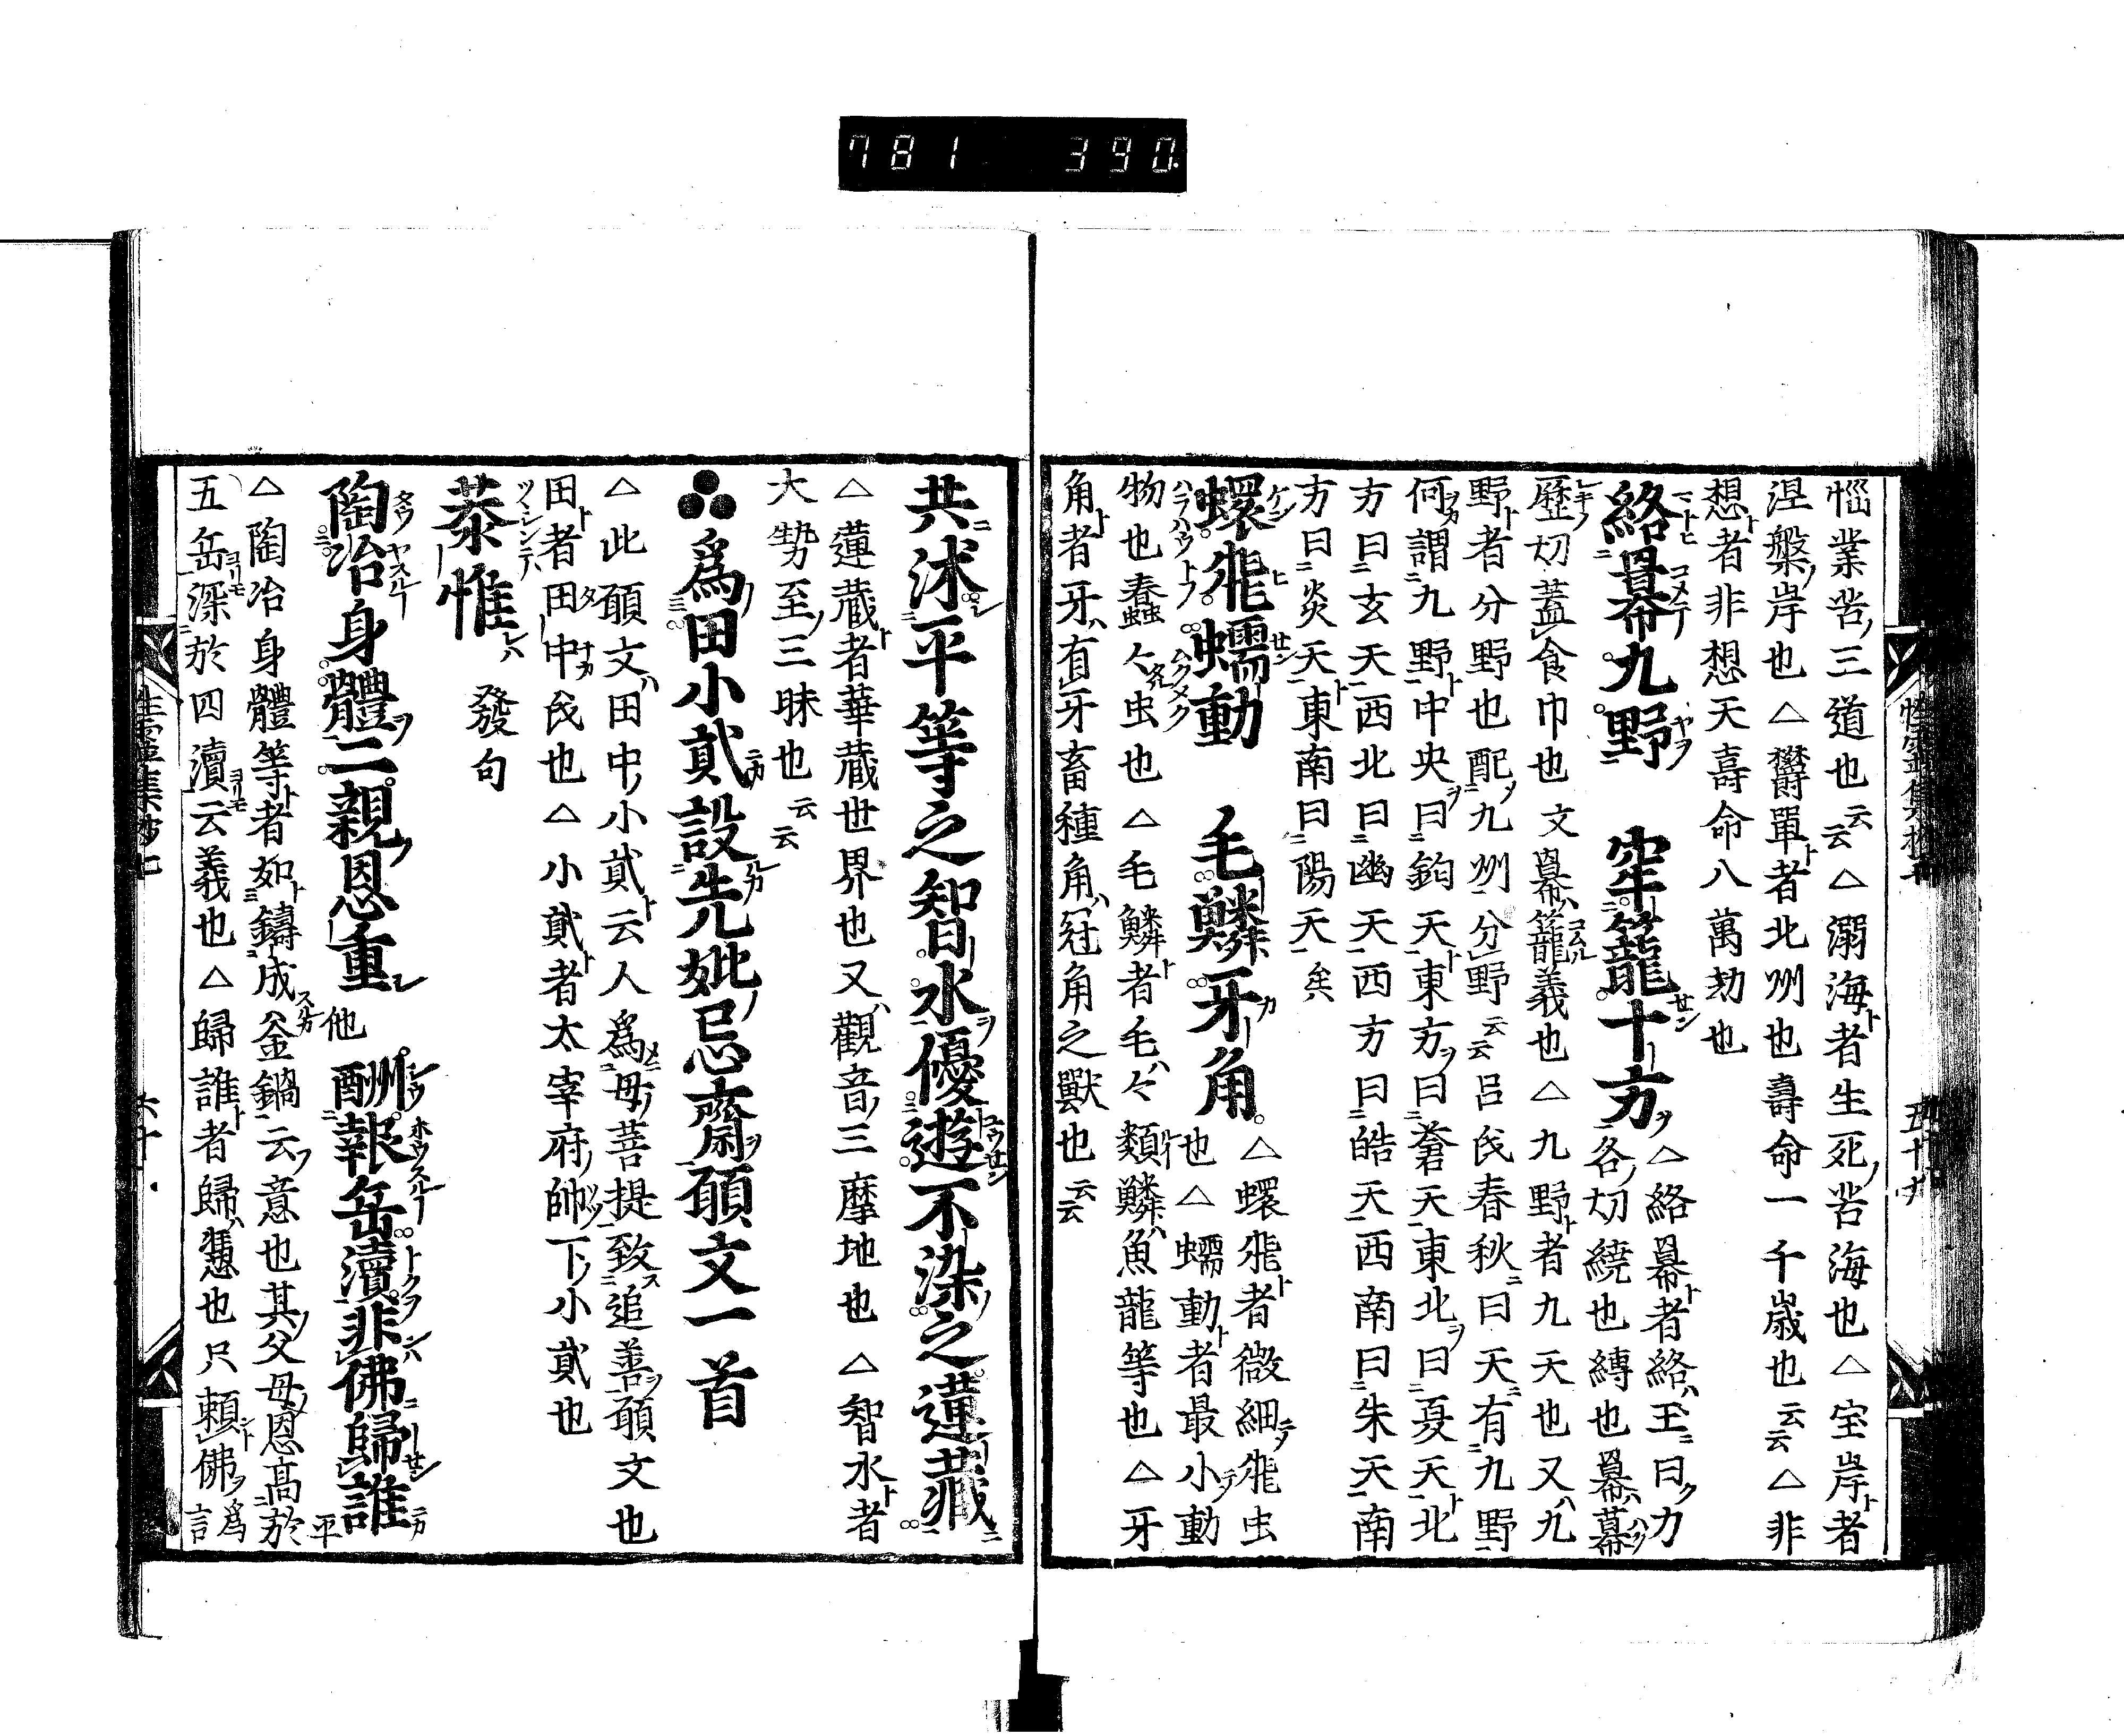 781 390
惱業苦三道也云云△溺海者生死苦海也△宝岸者
涅槃岸也△欝單者北州也壽命一千歳也云云△非
想者非想天壽命八萬劫也
絡冪九野 牢籠十方△絡冪者絡王曰力
各切繞也縛也冪幕
歷切蓋食巾也文冪籠義也△九野者九天也又九
野者分野也配九州分野云云呂氏春秋曰天有九野
何謂九野中央曰鈞天東方曰蒼天東北曰戞天北
方曰玄天西北曰幽天西方曰皓天西南曰朱天南
方曰炎天東南曰陽天矣
蠉飛蠕動 毛鱗牙角△蠉飛者微細飛虫
也△蠕動者最小動
物也蠢々虫也△毛鱗者毛々類鱗魚龍等也△牙
角者牙有牙畜種角冠角之獸也云云
性霊集抄七
五十九
共沐平等之智水優遊不染之蓮藏
△蓮藏者華藏世界也又觀音三摩地也△智水者
大勢至三昧也云云
爲田小貳設先妣忌齋願文一首
△此願文田中小貳云人爲母菩提致追善願文也
田者田中氏也△小貳者太宰府帥下小貳也
恭惟 發句
陶冶身體二親恩重他 酬報岳瀆非佛歸誰平
△陶冶身體等者如鑄成釜鍋云意也其父母恩高於
五岳深於四瀆云義也△歸誰者歸憑也只頼佛爲言
性霊集抄七
六十